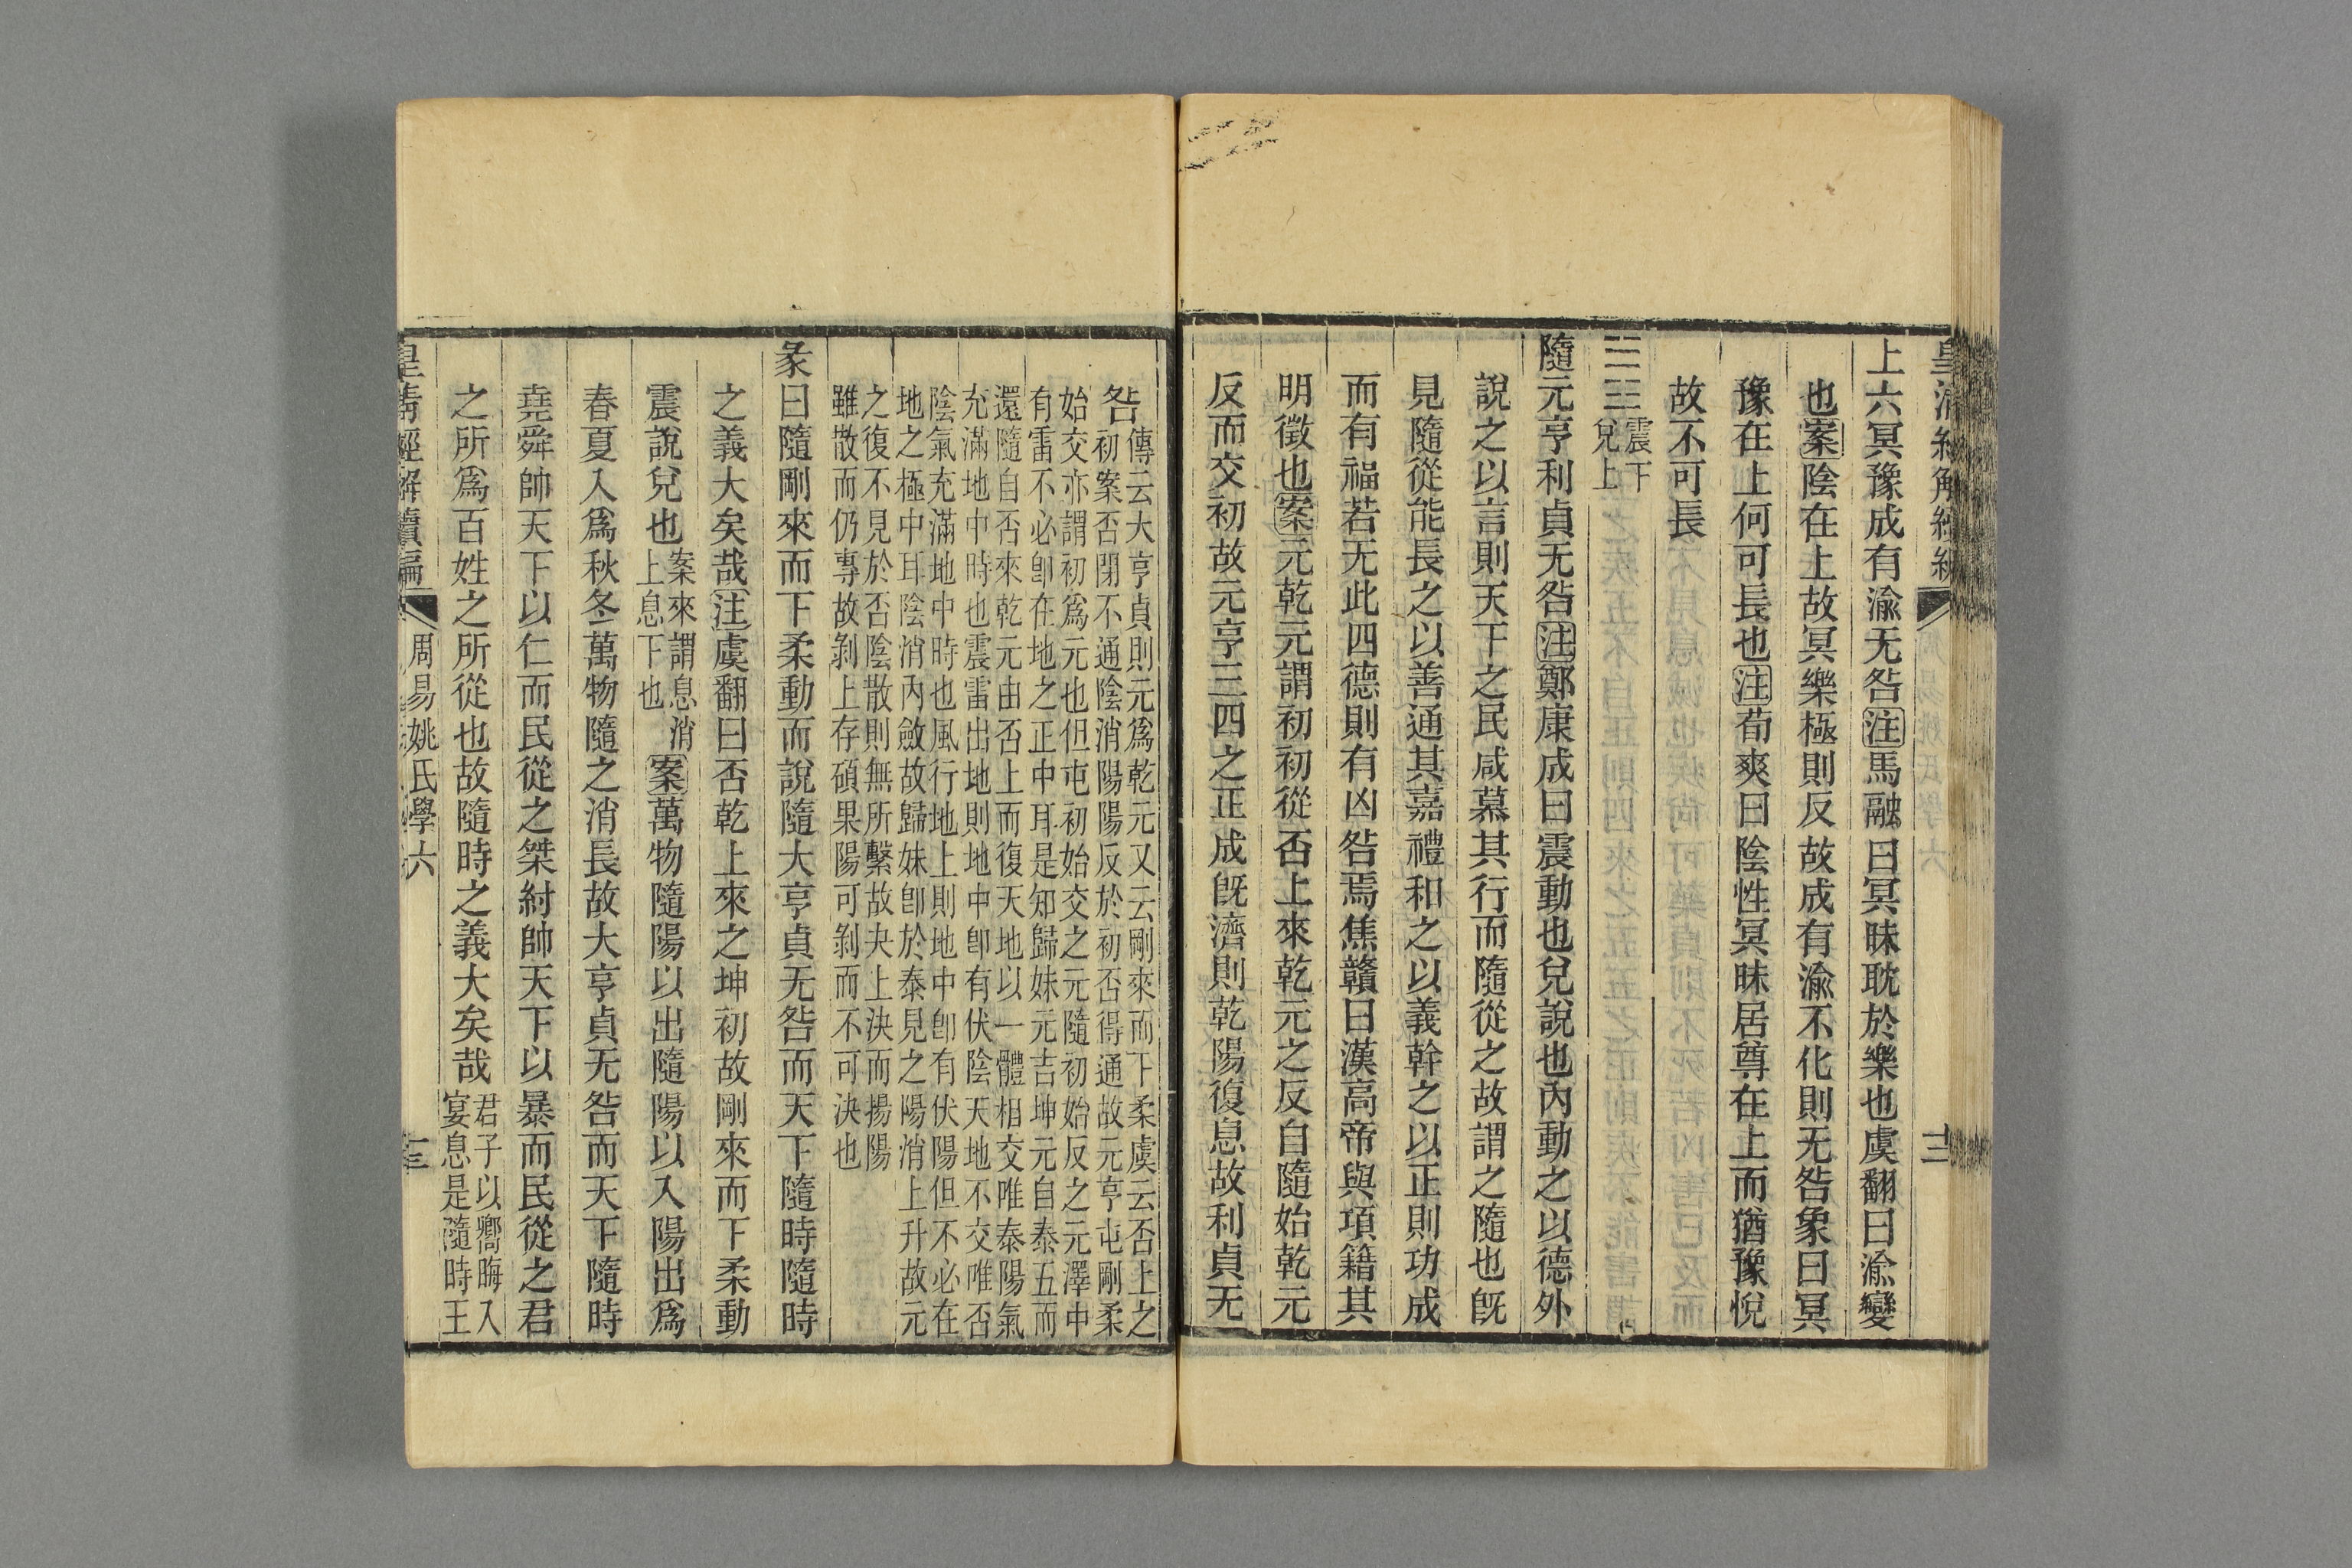 上六冥豫成有渝无咎注馬融曰冥昧耽於樂也虞翻曰渝變
也案陰在上故冥樂極則反故成有渝不化則无咎象曰冥
豫在上何可長也注荀爽曰陰性冥昧居尊在上而猶豫悅
故不可長
震下
兌上
隨元亨利貞无咎注鄭康成曰震動也兌說也內動之以德外
說之以言則天下之民咸慕其行而隨從之故謂之隨也旣
見隨從能長之以善通其嘉禮和之以義幹之以正則功成
而有福若无此四德則有凶咎焉焦贛曰漢高帝與項籍其
明徵也案元乾元謂初初從否上來乾元之反自隨始乾元
反而交初故元亨三四之正成旣濟則乾陽復息故利貞无
咎
傳云大亨貞則元爲乾元又云剛來而下柔虞云否上之
初案否閉不通陰消陽陽反於初否得通故元亨屯剛柔
始交亦謂初爲元也但屯初始交之元隨初始反之元澤中
有雷不必卽在地之正中耳是知歸妹元吉坤元自泰五而
還隨自否來乾元由否上而復天地以一體相交唯泰陽氣
充滿地中時也震雷出地則地中卽有伏陰天地不交唯否
陰氣充滿地中時也風行地上則地中卽有伏陽但不必在
地之極中耳陰消內斂故歸妹卽於泰見之陽消上升故元
之復不見於否陰散則無所繫故夬上決而揚陽
雖散而仍專故剝上存碩果陽可剝而不可決也
彖曰隨剛來而下柔動而說隨大亨貞无咎而天下隨時隨時
之義大矣哉注虞翻曰否乾上來之坤初故剛來而下柔動
震說兌也
案來謂息消
上息下也
案萬物隨陽以出隨陽以入陽出爲
春夏入爲秋冬萬物隨之消長故大亨貞无咎而天下隨時
堯舜帥天下以仁而民從之桀紂帥天下以暴而民從之君
之所爲百姓之所從也故隨時之義大矣哉
君子以嚮晦入
宴息是隨時王
皇淸經解續編
周易姚氏學六